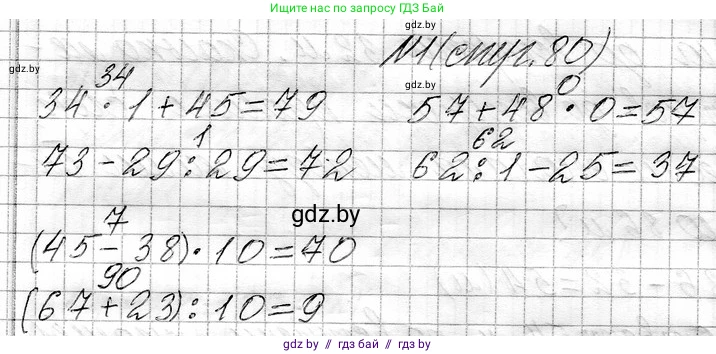 Ищите нас по запросу ГДЗ Бай
gdz.by
№1(стр. 80)
gdz.by
34
34 · 1 + 45 = 79
gdz.by
0
57 + 48 · 0 = 57
1
73 - 29 : 29 = 72
62
62 : 1 - 25 = 37
gdz.by
7
(45 - 38) · 10 = 70
90
(67 + 23) : 10 = 9
gdz.by // гдз бай // гдз by